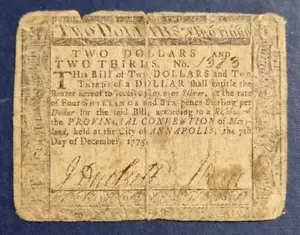 TWO DOLLARS
TWO DOLLARS AND
TWO THIRDS. No. 1383
THIS Bill of Two DOLLARS and Two
THIRDS of a DOLLAR shall entitle the
Bearer hereof to receive Gold or Silver, at the rate
of Four SHILLINGS and SIX pence Sterling per
Dollar for the said Bill, according to a Resolve of
the PROVINCIAL CONVENTION of Mary
land, held at the City of ANNAPOLIS, the 7th
Day of December, 1775.